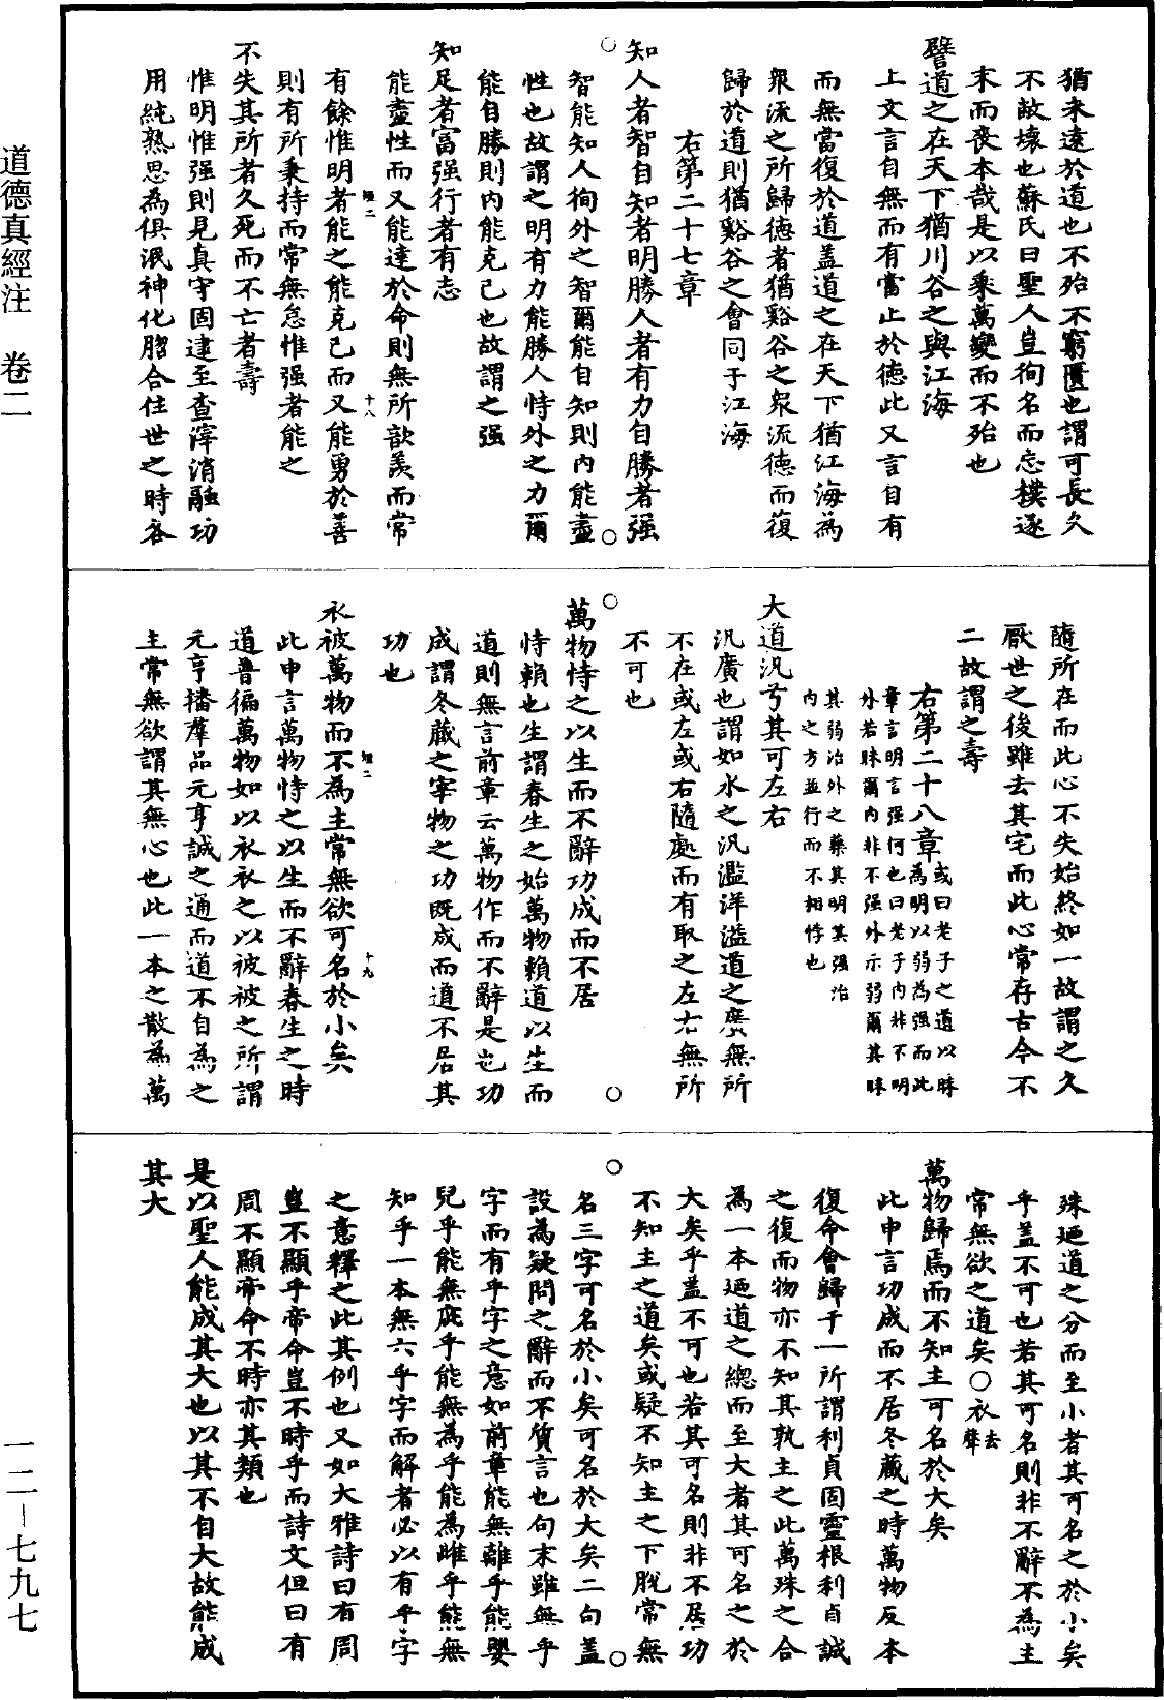 猶未遠於道也不殆不窮匱也謂可長久
不敝壞也蘇氏曰聖人豈徇名而忘樸逐
末而喪本哉是以乘萬變而不殆也
譬道之在天下猶川谷之與江海
上文言自無而有當止於德此又言自有
而無當復於道蓋道之在天下猶江海為
衆流之所歸德者猶谿谷之衆流德而復
歸於道則猶谿谷之會同于江海
右第二十七章
知人者智自知者明勝人者有力自勝者强
智能知人徇外之智爾能自知則內能盡
性也故謂之明有力能勝人恃外之力爾
能自勝則內能克己也故謂之强
知足者富强行者有志
能盡性而又能達於命則無所歆羨而常
有餘惟明者能之能克己而又能勇於善
則有所秉持而常無怠惟强者能之
不失其所者久死而不亡者壽
惟明惟强則見真守固逮至查滓消融功
用純熟思為俱泯神化脗合住世之時各
隨所在而此心不失始終如一故謂之久
厭世之後雖去其宅而此心常存古今不
二故謂之壽
右第二十八章或曰老子之道以昧為明以弱為强而此
章言明言强何也曰老子內非不明
外若昧爾內非不强外示弱爾其昧
其弱治外之藥其明其强治
內之方並行而不相悖也
大道汎兮其可左右
汎廣也謂如水之汎濫洋溢道之廣無所
不在或左或右隨處而有取之左右無所
不可也
萬物恃之以生而不辭功成而不居
恃賴也生謂春生之始萬物賴道以生而
道則無言前章云萬物作而不辭是也功
成謂冬藏之宰物之功既成而道不居其
功也
衣被萬物而不為主常無欲可名於小矣
此申言萬物恃之以生而不辭春生之時
道普徧萬物如以衣衣之以被被之所謂
元亨播羣品元亨誠之通而道不自為之
主常無欲謂其無心也此一本之散為萬
殊廼道之分而至小者其可名之於小矣
乎蓋不可也若其可名則非不辭不為主
常無欲之道矣〇衣去聲
萬物歸焉而不知主可名於大矣
此申言功成而不居冬藏之時萬物反本
復命會歸于一所謂利貞固靈根利貞誠
之復而物亦不知其孰主之此萬殊之合
為一本廼道之總而至大者其可名之於
大矣乎蓋不可也若其可名則非不居功
不知主之道矣或疑不知主之下脫常無
名三字可名於小矣可名於大矣二句蓋
設為疑問之辭而不質言也句末雖無乎
字而有乎字之意如前章能無離乎能嬰
兒乎能無疵乎能無為乎能為雌乎能無
知乎一本無六乎字而解者必以有乎字
之意釋之此其例也又如大雅詩曰有周
豈不顯乎帝命豈不時乎而詩文但曰有
周不顯帝命不時亦其類也
是以聖人能成其大也以其不自大故能成
其大
道德真經注 卷二
一二－七九七